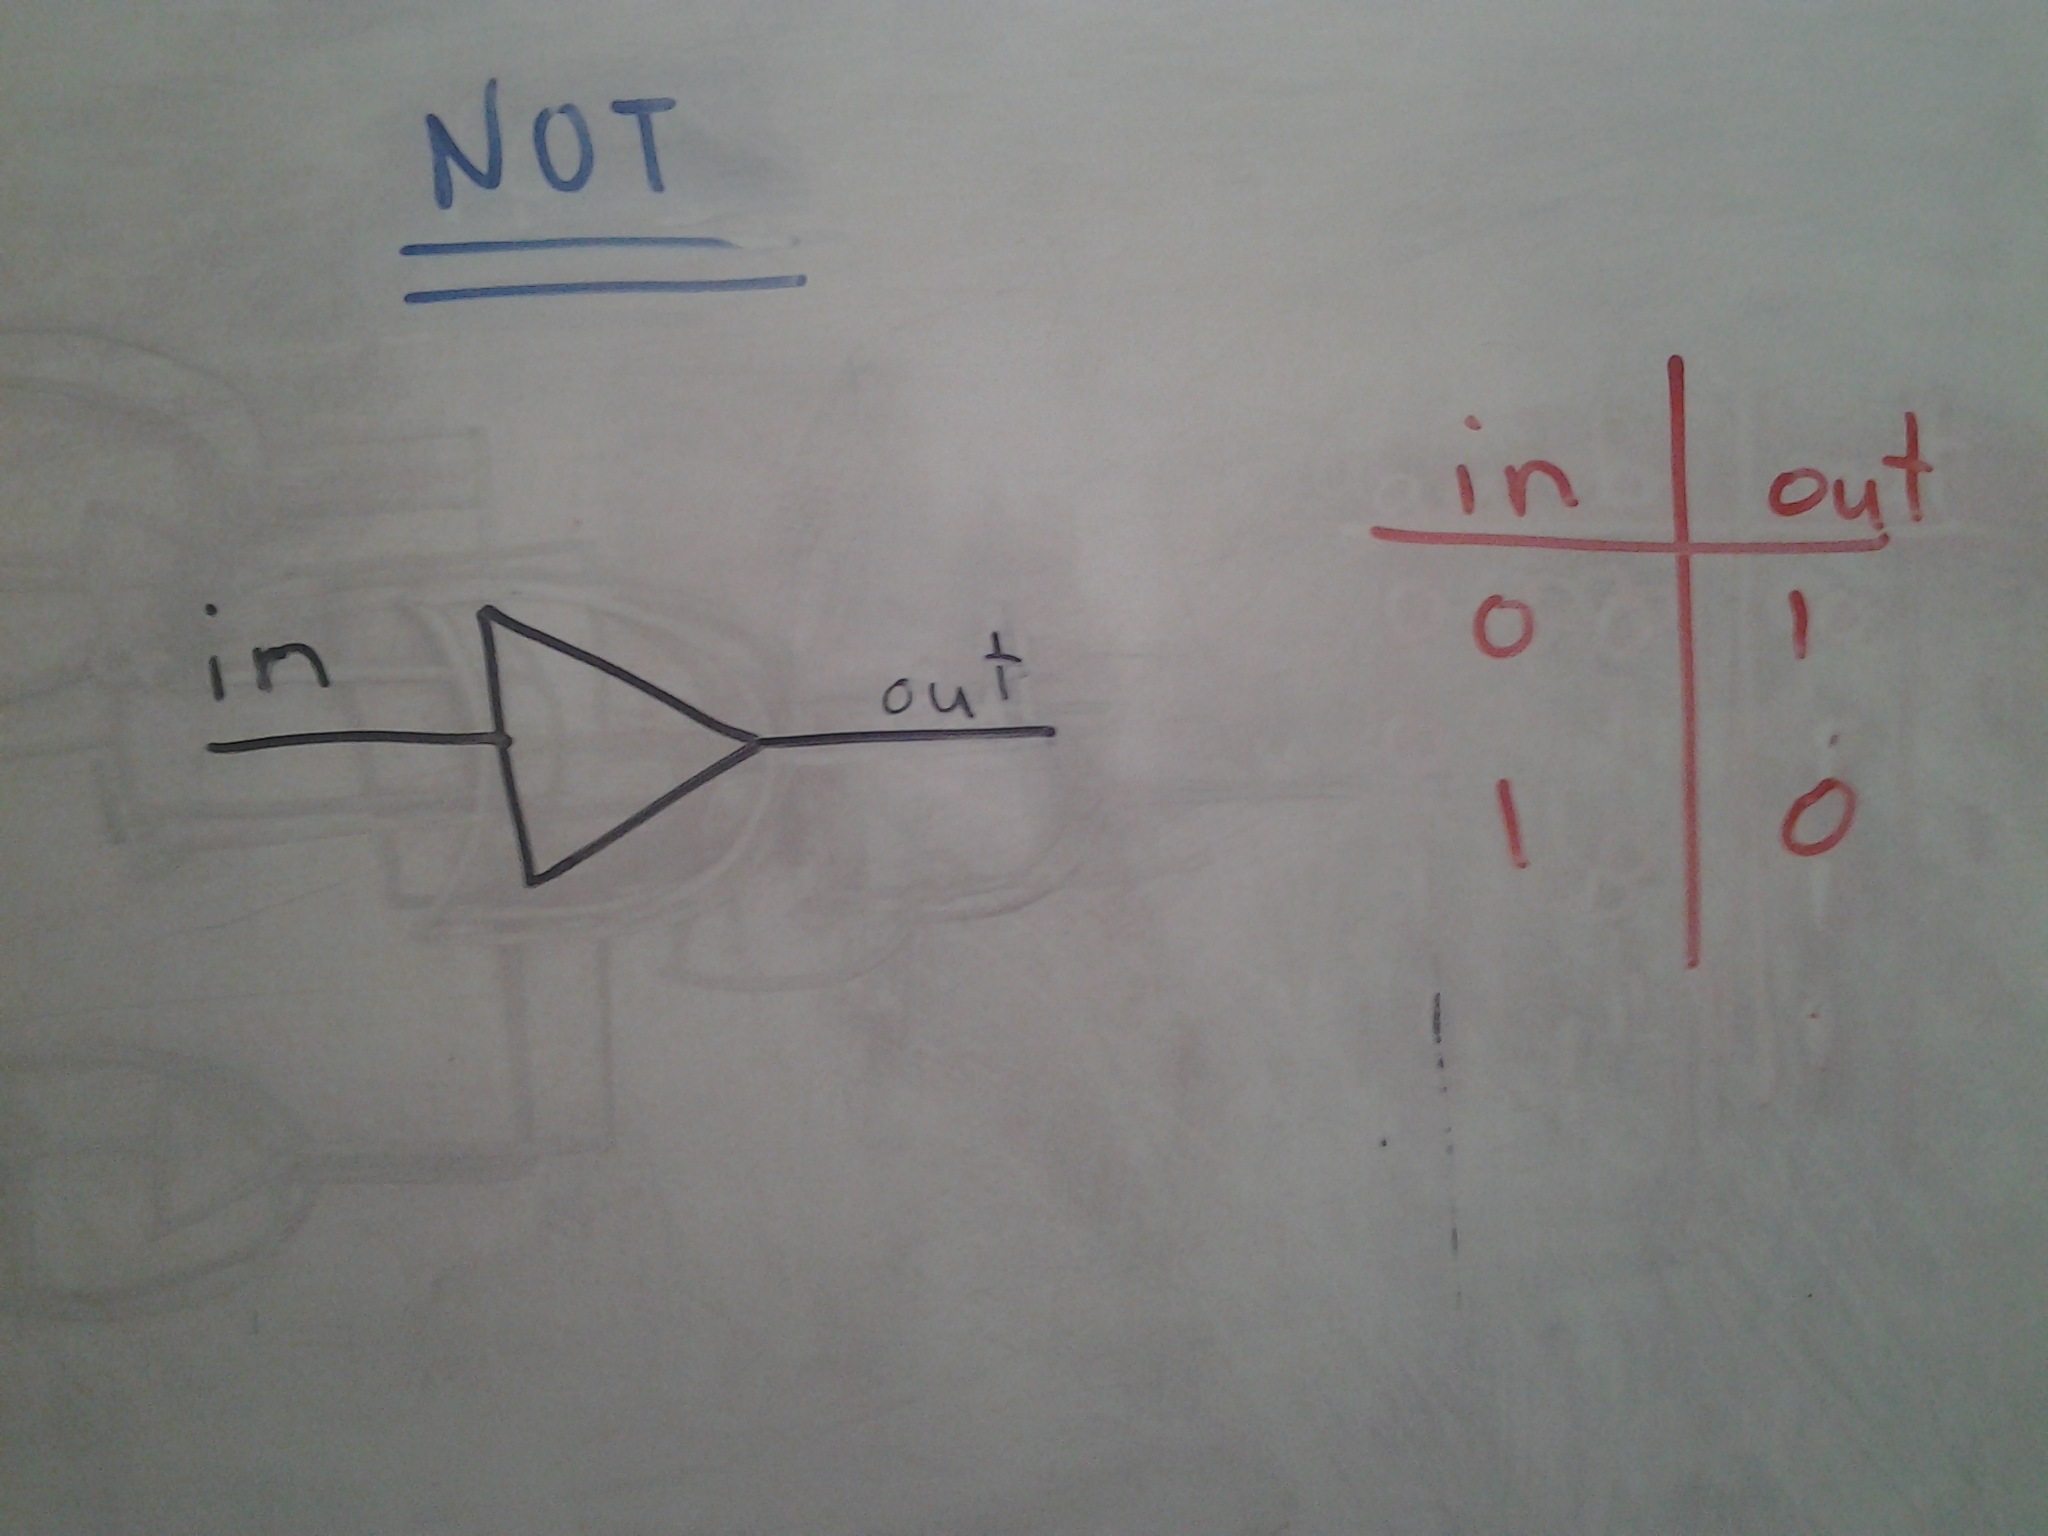 NOT
in out
in out
0 1
1 0